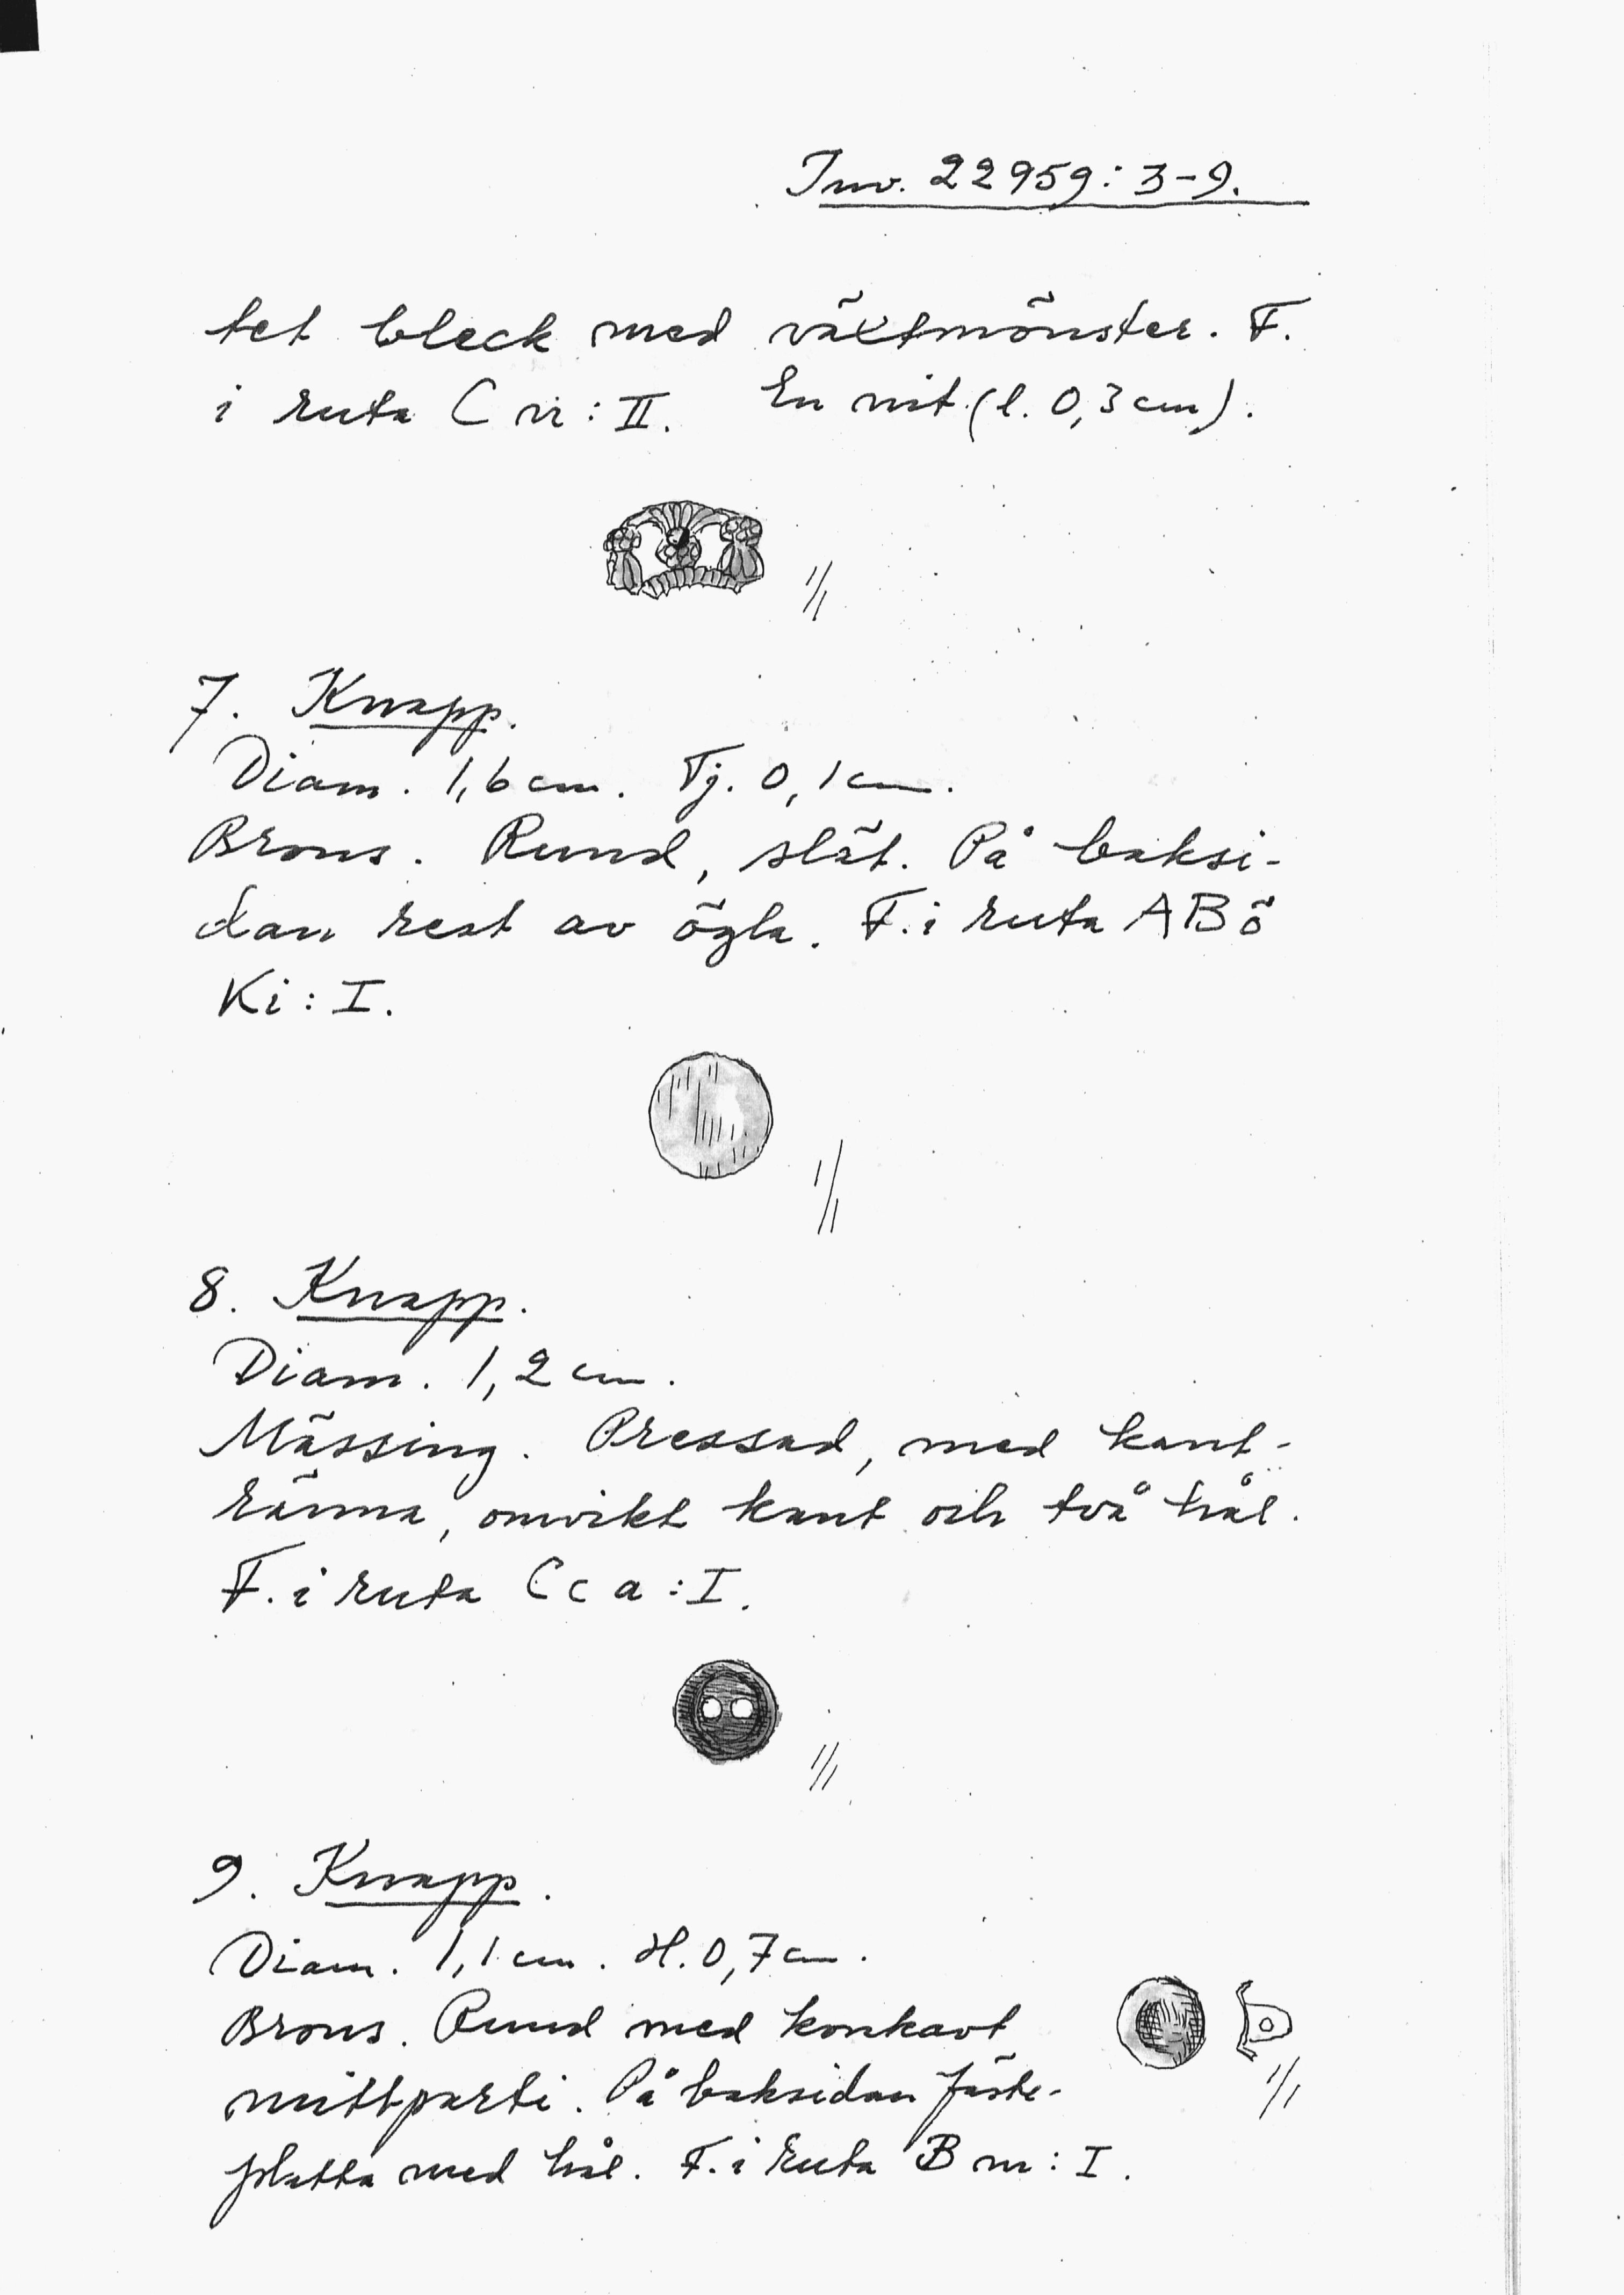 Inv. 22959:3-9.
tet bleck med växtmönster. F.
i ruta C vi : II. En nit (l. 0,3 cm).
1/1
7. Knapp.
Diam. 1,6 cm. Tj. 0,1 cm.
Brons. Rund, slät. På baksi-
dan rest av ögla. F. i ruta ABö
Ki : I.
1/1
8. Knapp.
Diam. 1,2 cm.
Mässing. Pressad, med kant-
ränna, omvikt kant och två hål.
F. i ruta Cca : I.
1/1
9. Knapp.
Diam. 1,1 cm. H. 0,7 cm.
Brons. Rund med konkavt
mittparti. På baksidan fäste-
platta med hål. F. i ruta B m : I.
1/1